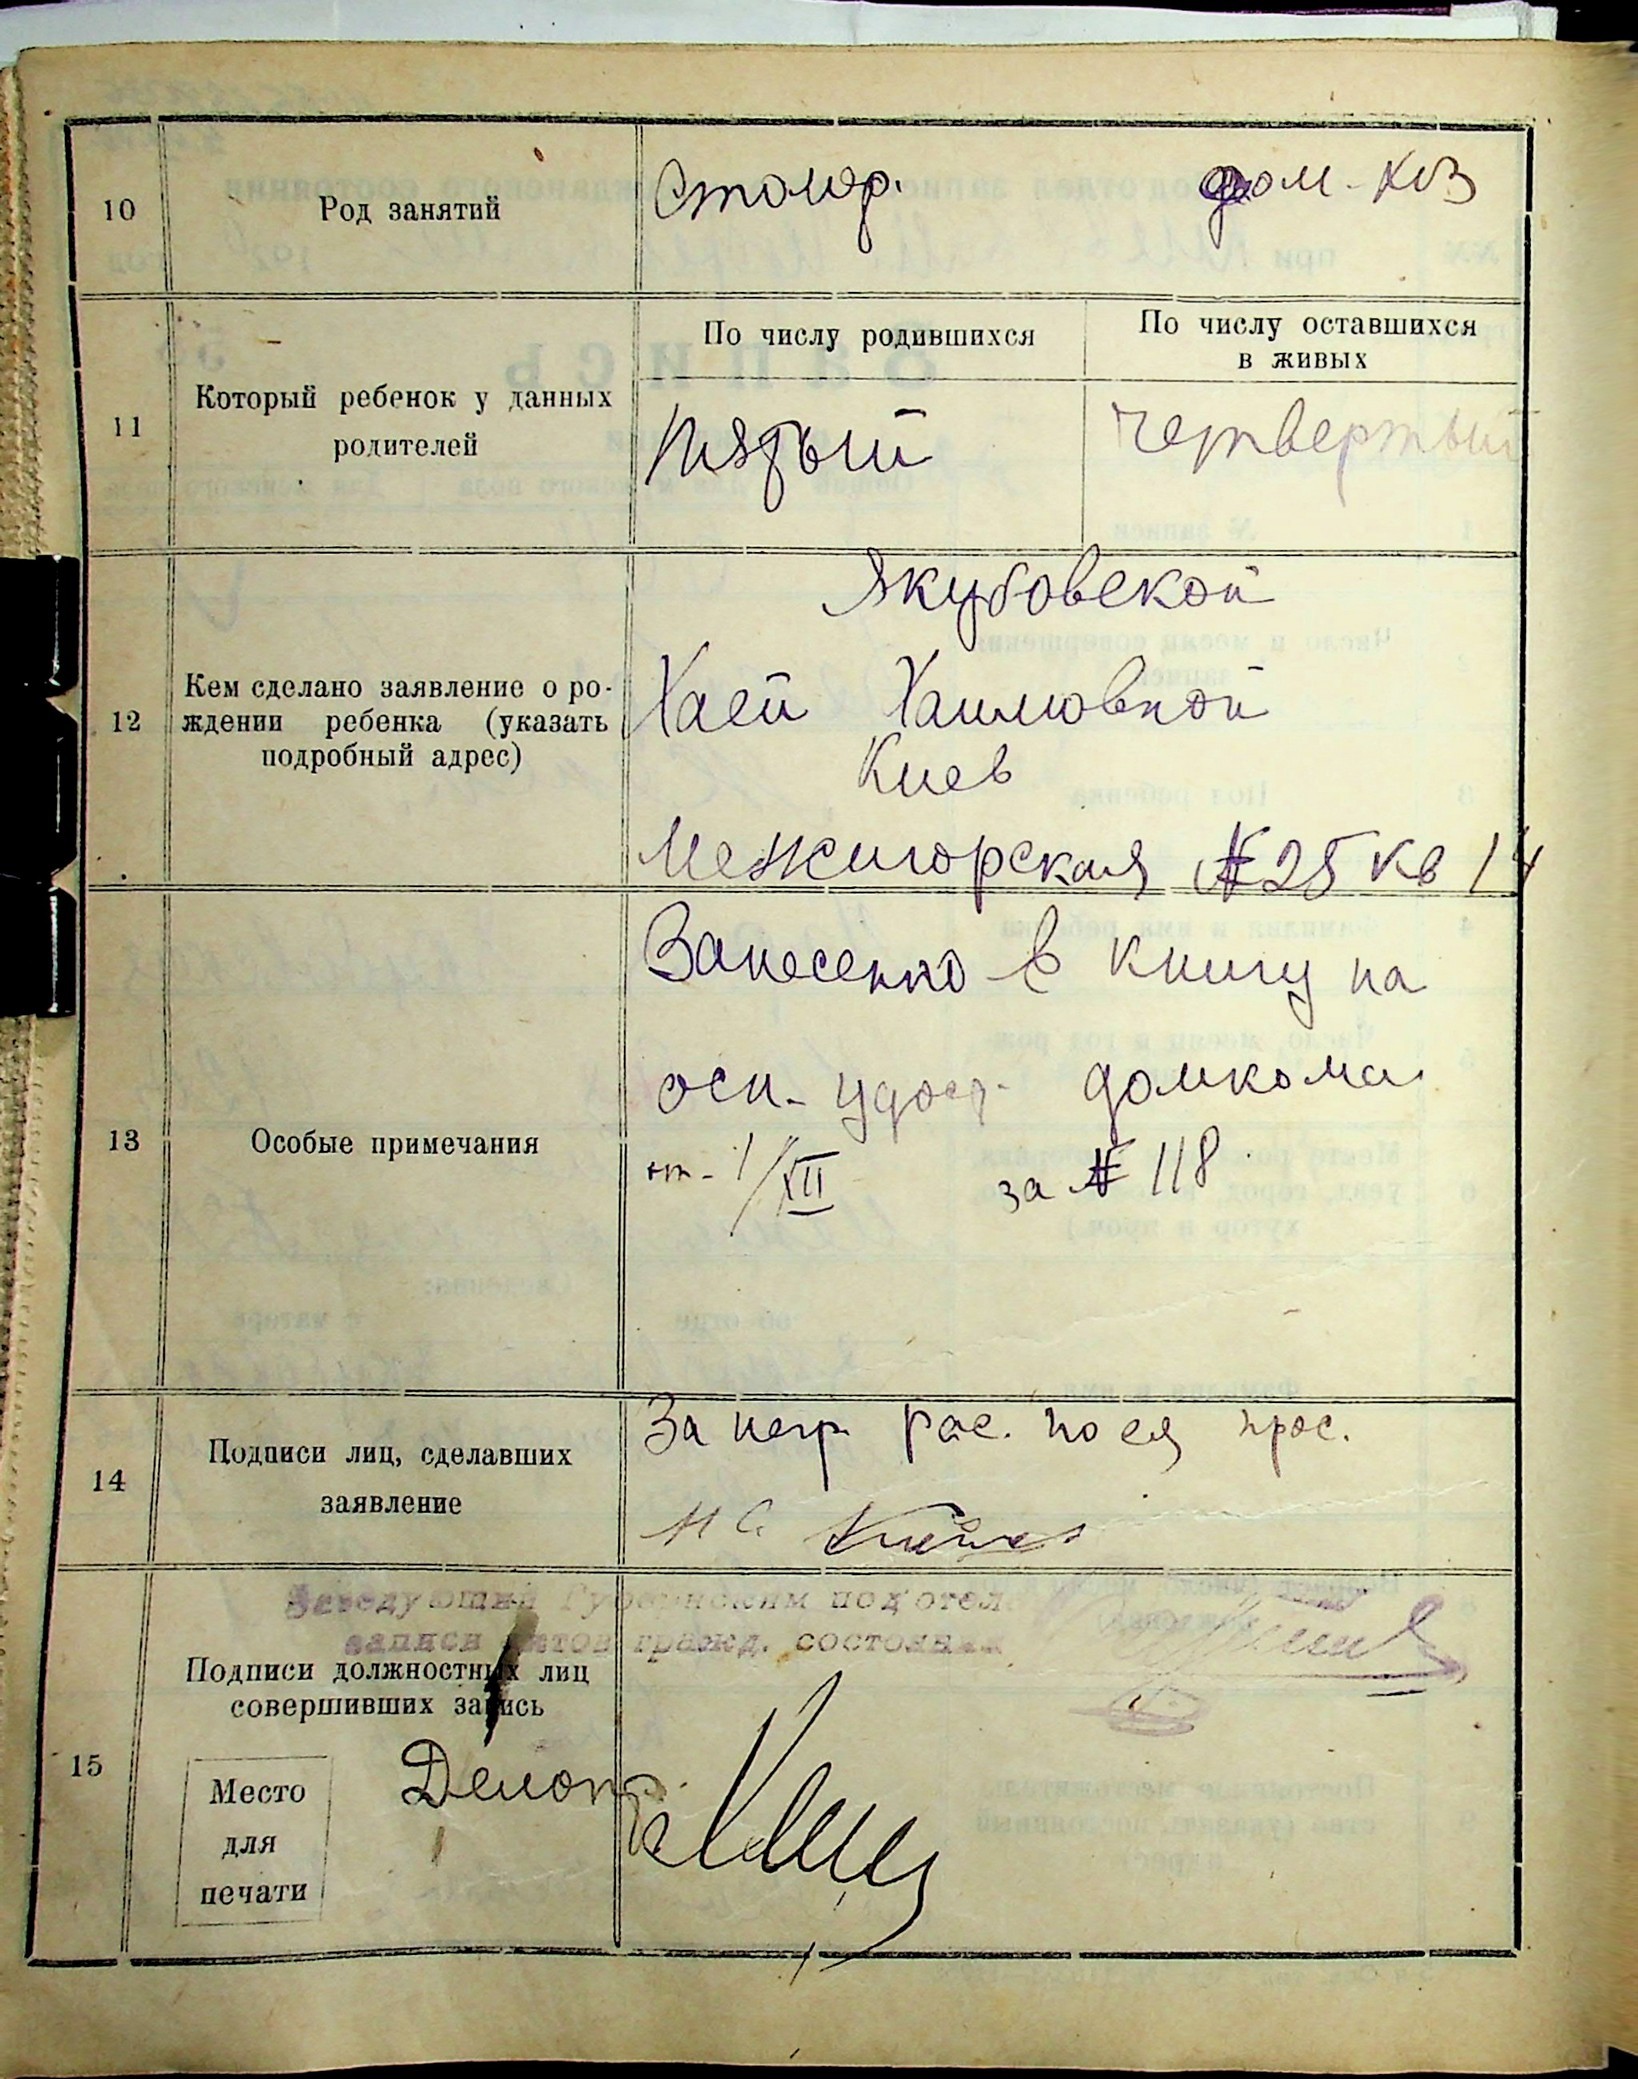 10
Род занятий
Столяр. дом-хоз
11
Который ребенок у данных
родителей
По числу родившихся
По числу оставшихся
в живых
пятый
четвертый
12
Кем сделано заявление о ро-
ждении ребенка (указать
подробный адрес)
Якубовской
Хаей Хаимовной
Киев
Межигорская № 25 кв 14
13
Особые примечания
Занесенно в книгу на
осн. удост. домкома
от 1/XII за № 118
14
Подписи лиц, сделавших
заявление
За негр. рас. по ея прос.
15
Заведующий Губернским подотел
записи актов гражд. состояния
Подписи должностных лиц
совершивших запись
Место
для
печати
Делопр.